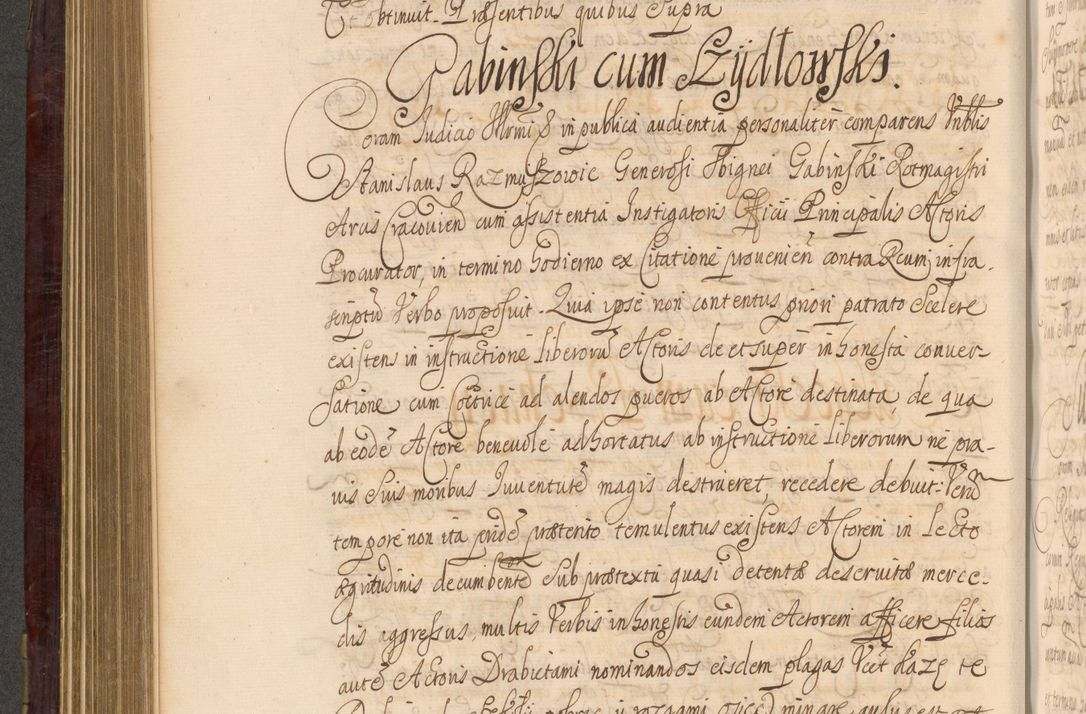 Et obtinuit. Præsentibus quibus Supra
Gabinski cum Szydłowski.
Coram Iudicio in publica audientia personaliter comparens
Stanislaus Razmuszowic Generosi Gabinski Rotmagistri
Arcis Cracovień cum assistentia Instigatoris Officii Principalis Actoris
Procurator, in termino hodierno ex Citatione provenień contra Reum infra.
scriptũ Verbo proposuit. Quia ipse non contentus priori patrato Scelere
existens in instructione liberorũ Actoris de et super inhonesta conver-
satione cum Coctrice ad alendos pueros ab Actore destinata, de qua
ab eodẽ Actore benevole adhortatus ab instructione liberorum ne pra-
vis Suis moribus Iuventutẽ magis destrueret, recedere debuit. Verũ
tempore non ita pridẽ præterito temulentus existens Actorem in lecto
ægritudinis decumbentẽ Sub prætextu quasi detentæ deservitæ merce-
dis aggressus, multis Verbis inhonestis eundem Actorem afficere filios
autẽ Actoris Drabictami nominandos eisdem plagas Vcet każę te